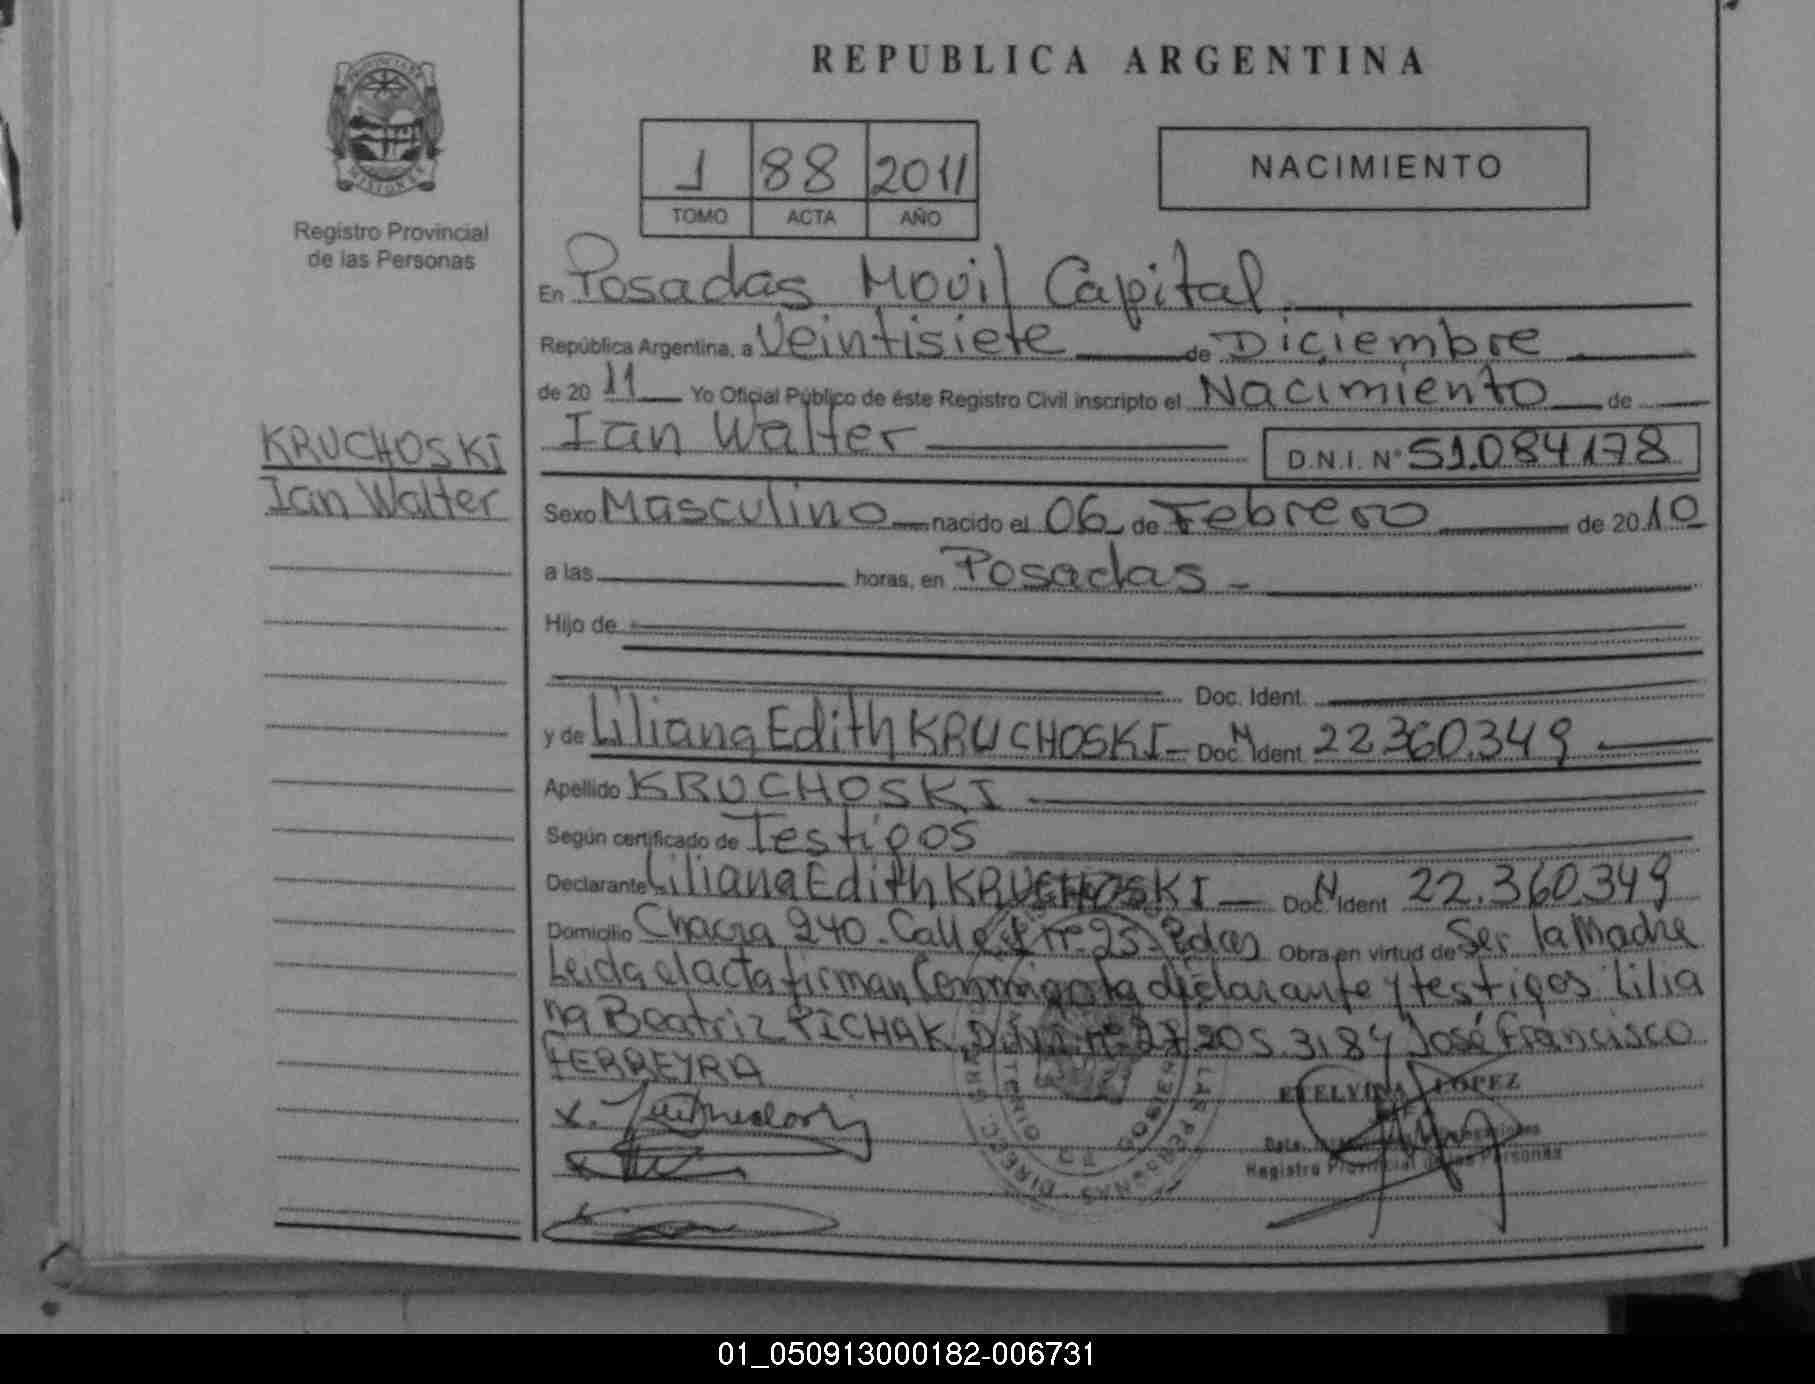 REPUBLICA ARGENTINA
PROVINCIA DE
MISIONES
Registro Provincial
de las Personas
1 88 2011
TOMO ACTA AÑO
NACIMIENTO
En Posadas Movil Capital
República Argentina, a Veintisiete de Diciembre
de 20 11 Yo Oficial Público de éste Registro Civil inscripto el Nacimiento de
Ian Walter D.N.I. N° 51.084.178
KRUCHOSKI
Ian Walter
Sexo Masculino nacido el 06 de Febrero de 20 10
a las horas, en Posadas -
Hijo de
Doc. Ident.
y de Liliana Edith KRUCHOSKI Doc. Ident. 22.360.349
Apellido KRUCHOSKI
Según certificado de Testigos
Declarante Liliana Edith KRUCHOSKI Doc. Ident 22.360.349
Domicilio Chacra 240 - Calle nº 25 - Pdas Obra en virtud de Ser la Madre
Leida el acta firman Conmigo la declarante y testigos: Lilia
na Beatriz PICHAK D.N.I. nº 27.205.318 y José Francisco
FERREYRA
ETELVINA LOPEZ
Registro Provincial de las Personas
01_050913000182-006731